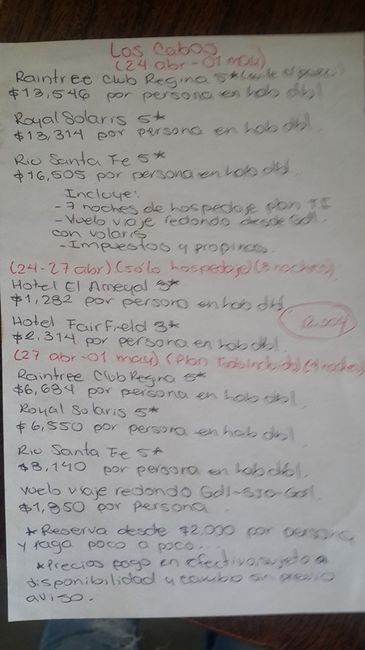 Los Cabos
(24 abr - 01 may)
Raintree Club Regina 5*
$13,546 por persona en hab dbl
Royal Solaris 5*
$13,314 por persona en hab dbl.
Riu Santa Fe 5*
$16,505 por persona en hab dbl.
Incluye:
- 7 noches de hospedaje plan TI
- Vuelo viaje redondo desde Gdl.
con volaris
- Impuestos y propinas.
(24-27 abr) (sólo hospedaje) (3 noches)
Hotel El Ameyal 3*
$1,282 por persona en hab dbl
Hotel Fairfield 3*
$2,314 por persona en hab dbl.
(27 abr - 01 may) (Plan Todo Incluido) (4 noches)
Raintree Club Regina 5*
$6,684 por persona en hab dbl.
Royal Solaris 5*
$6,550 por persona en hab dbl.
Riu Santa Fe 5*
$8,140 por persona en hab dbl.
vuelo viaje redondo Gdl-SJD-Gdl.
$1,850 por persona.
* Reserva desde $2,000 por persona
y paga poco a poco...
* Precios pago en efectivo, sujeto a
disponibilidad y cambio sin previo
aviso.